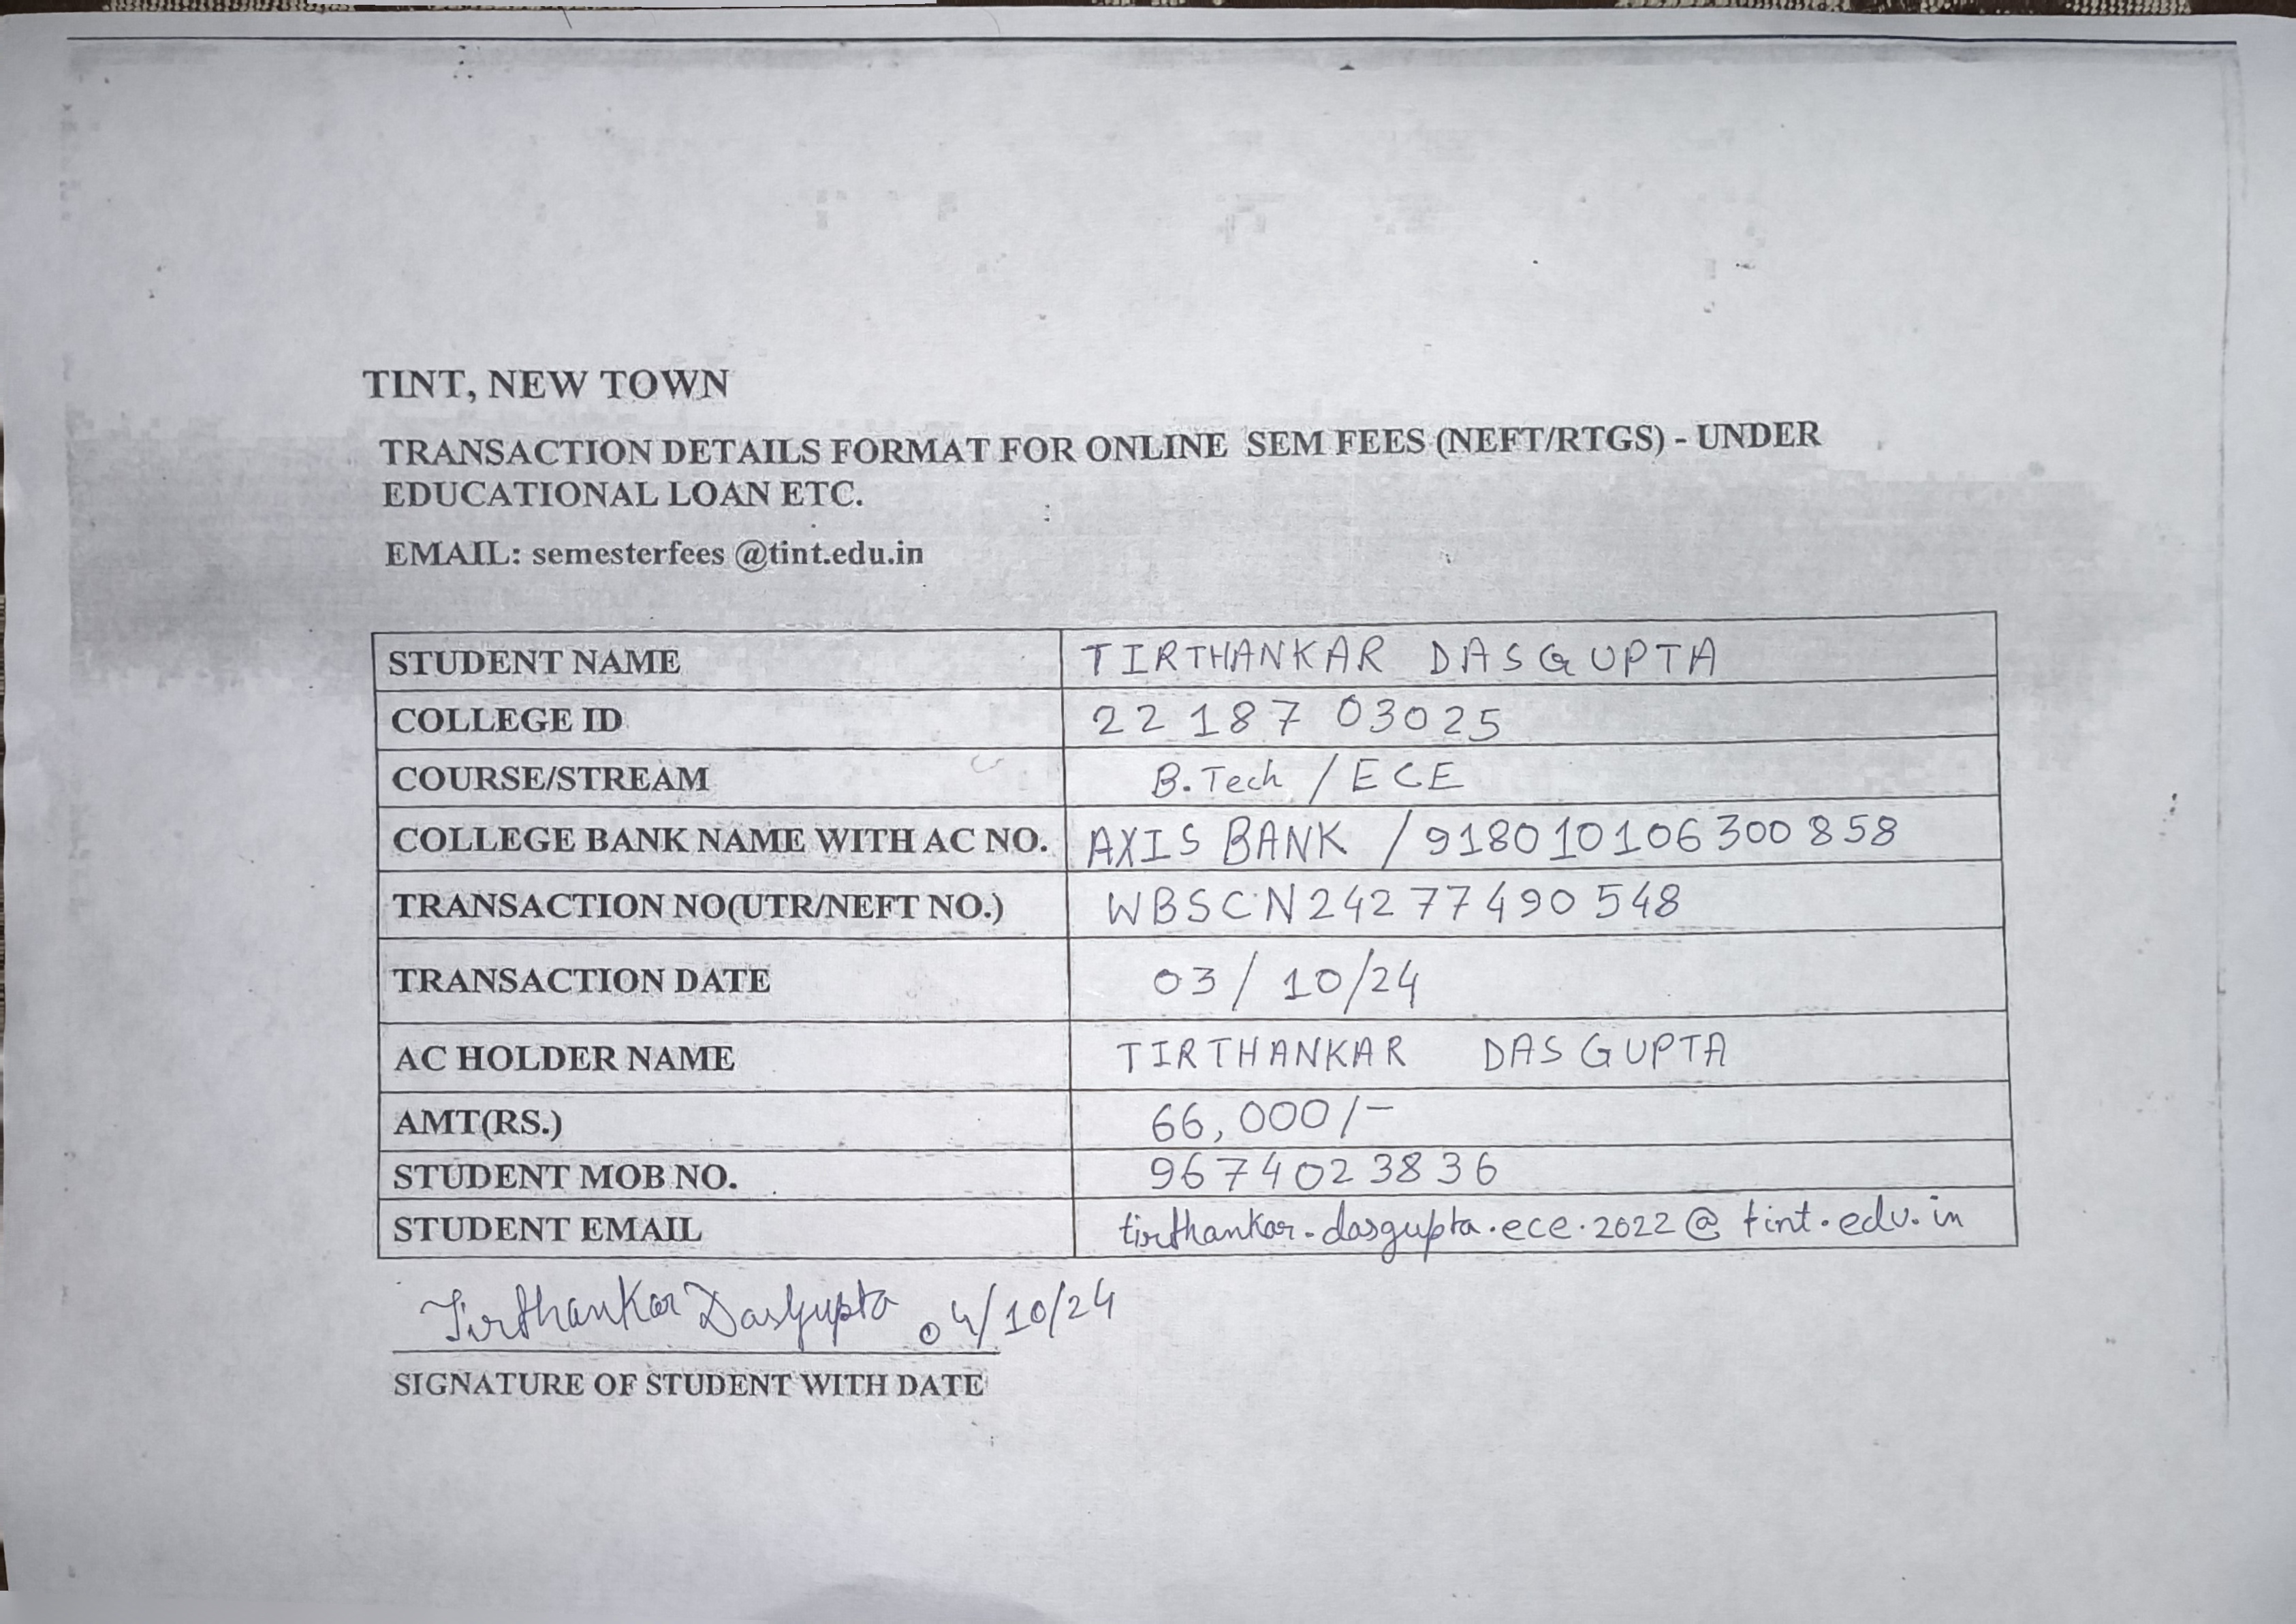 TINT, NEW TOWN
TRANSACTION DETAILS FORMAT FOR ONLINE SEM FEES (NEFT/RTGS) - UNDER
EDUCATIONAL LOAN ETC.
EMAIL: semesterfees @tint.edu.in
STUDENT NAME TIRTHANKAR DASGUPTA
COLLEGE ID 22 187 03025
COURSE/STREAM B.Tech / ECE
COLLEGE BANK NAME WITH AC NO. AXIS BANK / 918010106300858
TRANSACTION NO(UTR/NEFT NO.) WBSCN24277490548
TRANSACTION DATE 03/10/24
AC HOLDER NAME TIRTHANKAR DASGUPTA
AMT(RS.) 66,000/-
STUDENT MOB NO. 9674023836
STUDENT EMAIL tirthankar.dasgupta.ece.2022@tint.edu.in
Tirthankar Dasgupta 04/10/24
SIGNATURE OF STUDENT WITH DATE